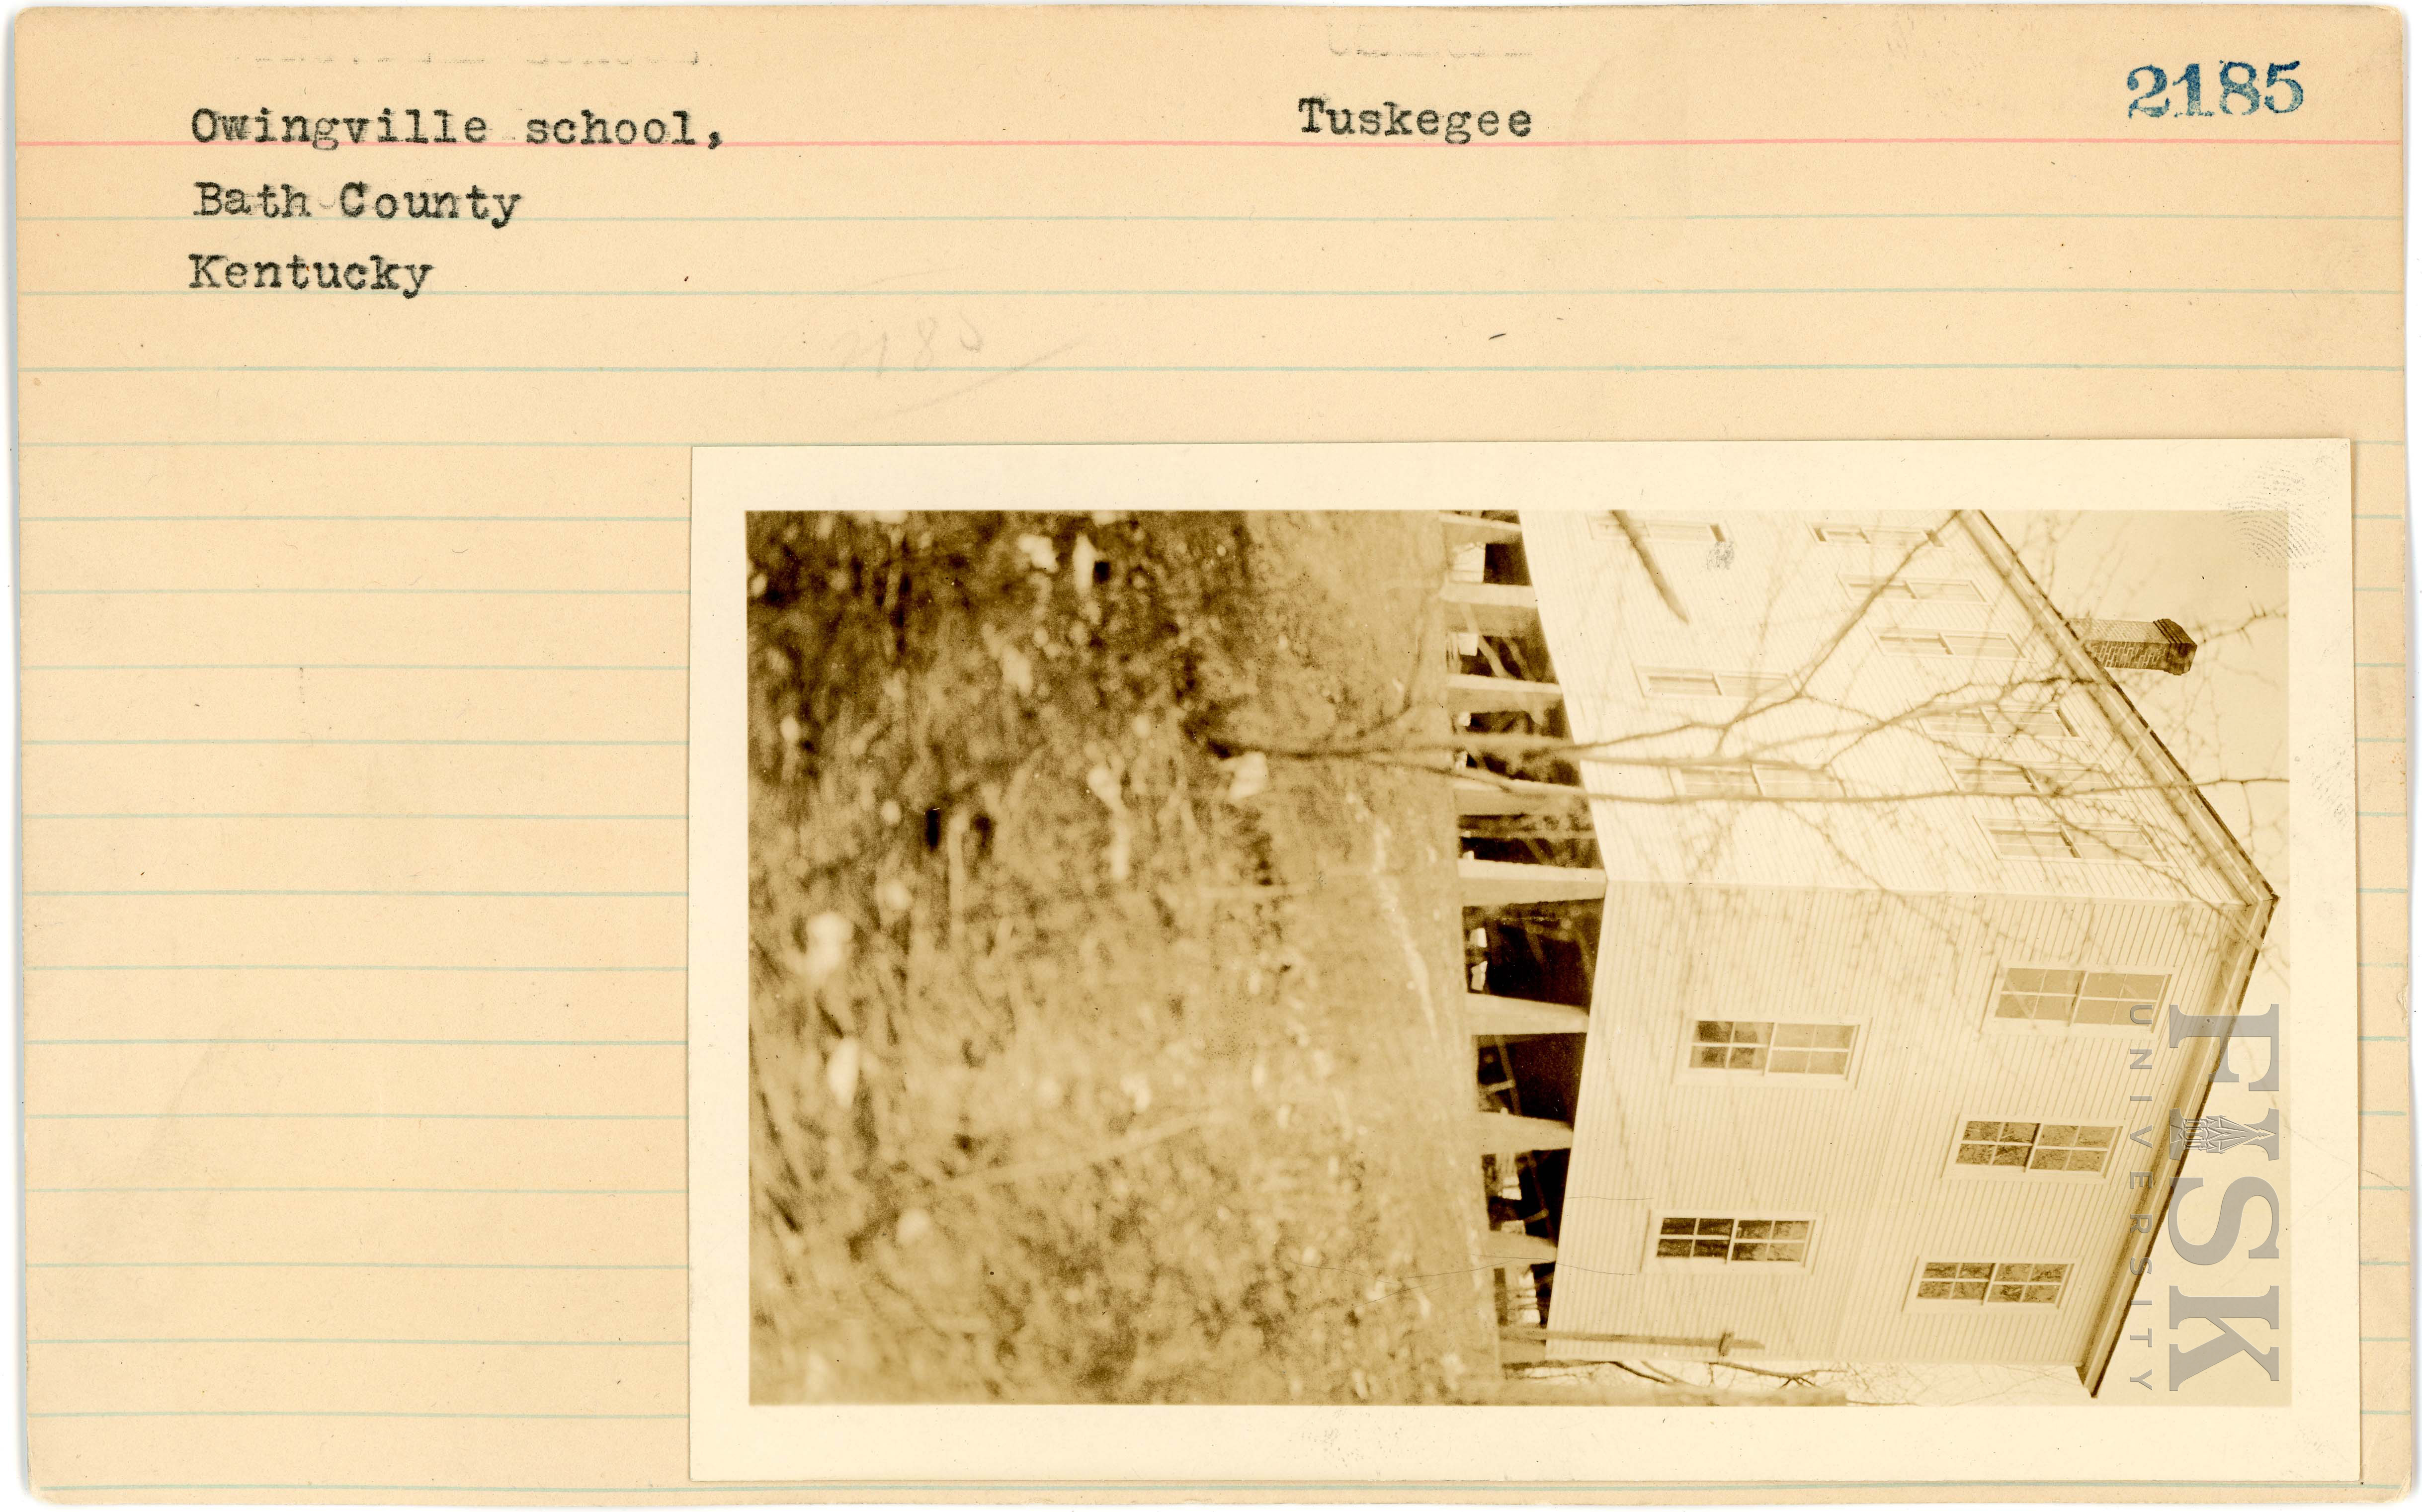 Owingville school,
Tuskegee
2185
Bath County
Kentucky
2185
FISK
UNIVERSITY